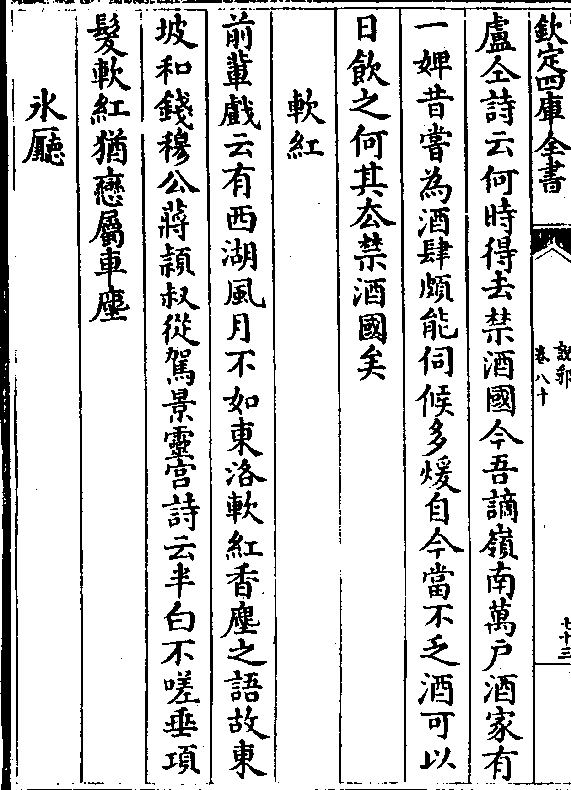 欽定四庫全書
說郛
卷八十
七十三
盧仝詩云何時得去禁酒國今吾謫嶺南萬戶酒家有
一婢昔嘗為酒肆頗能伺候多煖自今當不乏酒可以
日飲之何其厺禁酒國矣
軟紅
前輩戲云有西湖風月不如東洛軟紅香塵之語故東
坡和錢穆公蔣頴叔從駕景靈宫詩云半白不嗟垂項
髮軟紅猶戀屬車塵
氷廳